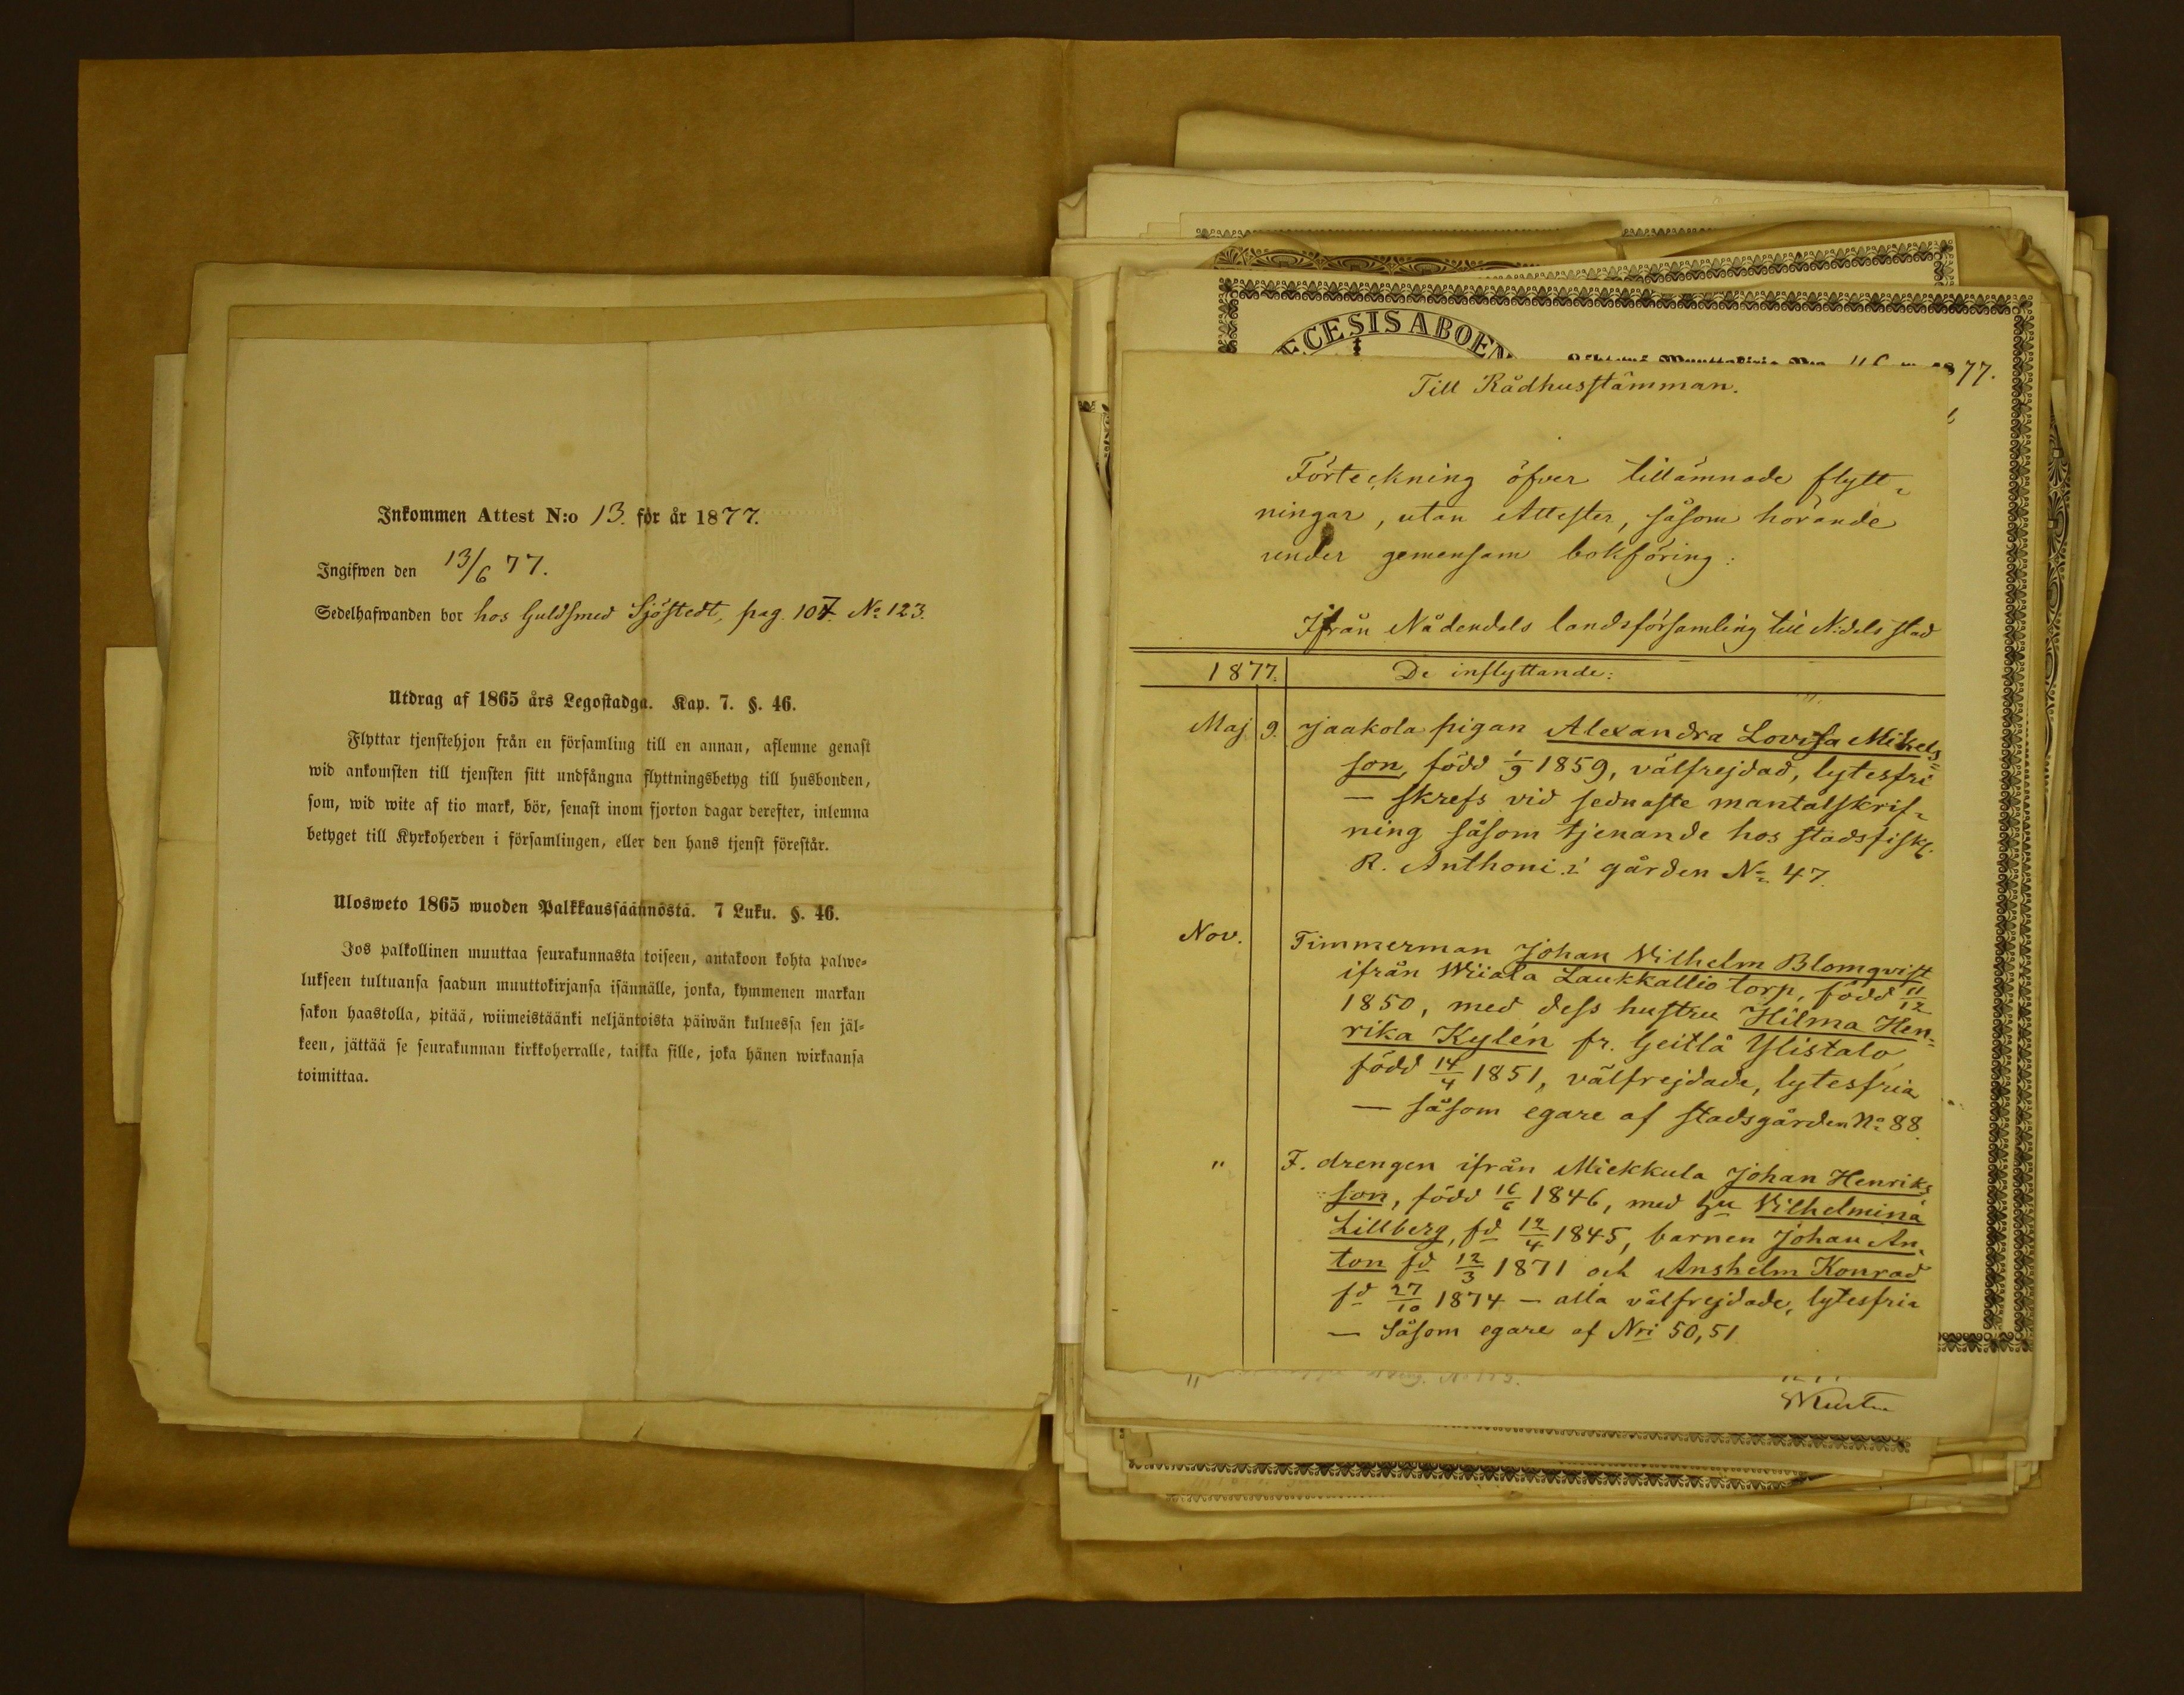 Inkommen Attest N:o 13. för år 1877.
Ingifwen den 13/6 77.
Sedelhafwanden bor hos Guldsmed Sjöstedt, pag. 107. No 123.
Utdrag af 1865 års Legostadga. Kap. 7. §. 46.
Flyttar tjenstehjon från en församling till en annan, aflemne genast
wid ankomsten till tjensten sitt undfångna flyttningsbetyg till husbonden,
som, wid wite af tio mark, bör, senast inom fjorton dagar derefter, inlemna
betyget till Kyrkoherden i församlingen, eller den hans tjenst förestår.
Ulosweto 1865 wuoden Palkkaussäännöstä. 7 Luku. §. 46.
Jos palkollinen muuttaa seurakunnasta toiseen, antakoon kohta palwe-
lukseen tultuansa saadun muuttokirjansa isännälle, jonka, kymmenen markan
sakon haastolla, pitää, wiimeistäänki neljäntoista päiwän kuluessa sen jäl-
keen, jättää se seurakunnan kirkkoherralle, taikka sille, joka hänen wirkaansa
toimittaa.
ECESIS ABOEN
77.
Till Rådhusstämman.
Förteckning öfver tillämnade flytt-
ningar, utan Attester, såsom hörande
under gemensam bokföring:
Ifrån Nådendals landsförsamling till N:dels stad
1877. De inflyttande:
Maj 9. Jaakola pigan Alexandra Lovisa Mikels-
son, född 1/9 1859, välfrejdad, lytesfri
— skrefs vid sednaste mantalskrif-
ning såsom tjenande hos stadsfisk.
R. Anthoni i gården No 47.
Nov. Timmerman Johan Vilhelm Blomqvist
ifrån Wiiala Laukkallio torp, född 11/12
1850, med dess hustru Hilma Hen-
rika Kylén fr. Geitlå Ylistalo,
född 14/4 1851, välfrejdade, lytesfria
— såsom egare af stadsgården No 88.
" F. drengen ifrån Miekkula Johan Henriks-
son, född 16/6 1846, med hu Vilhelmina
Lillberg, fd 12/4 1845, barnen Johan An-
ton fd 12/3 1871 och Anshelm Konrad
fd 27/10 1874 — alla välfrejdade, lytesfria
— Såsom egare af Nri 50, 51